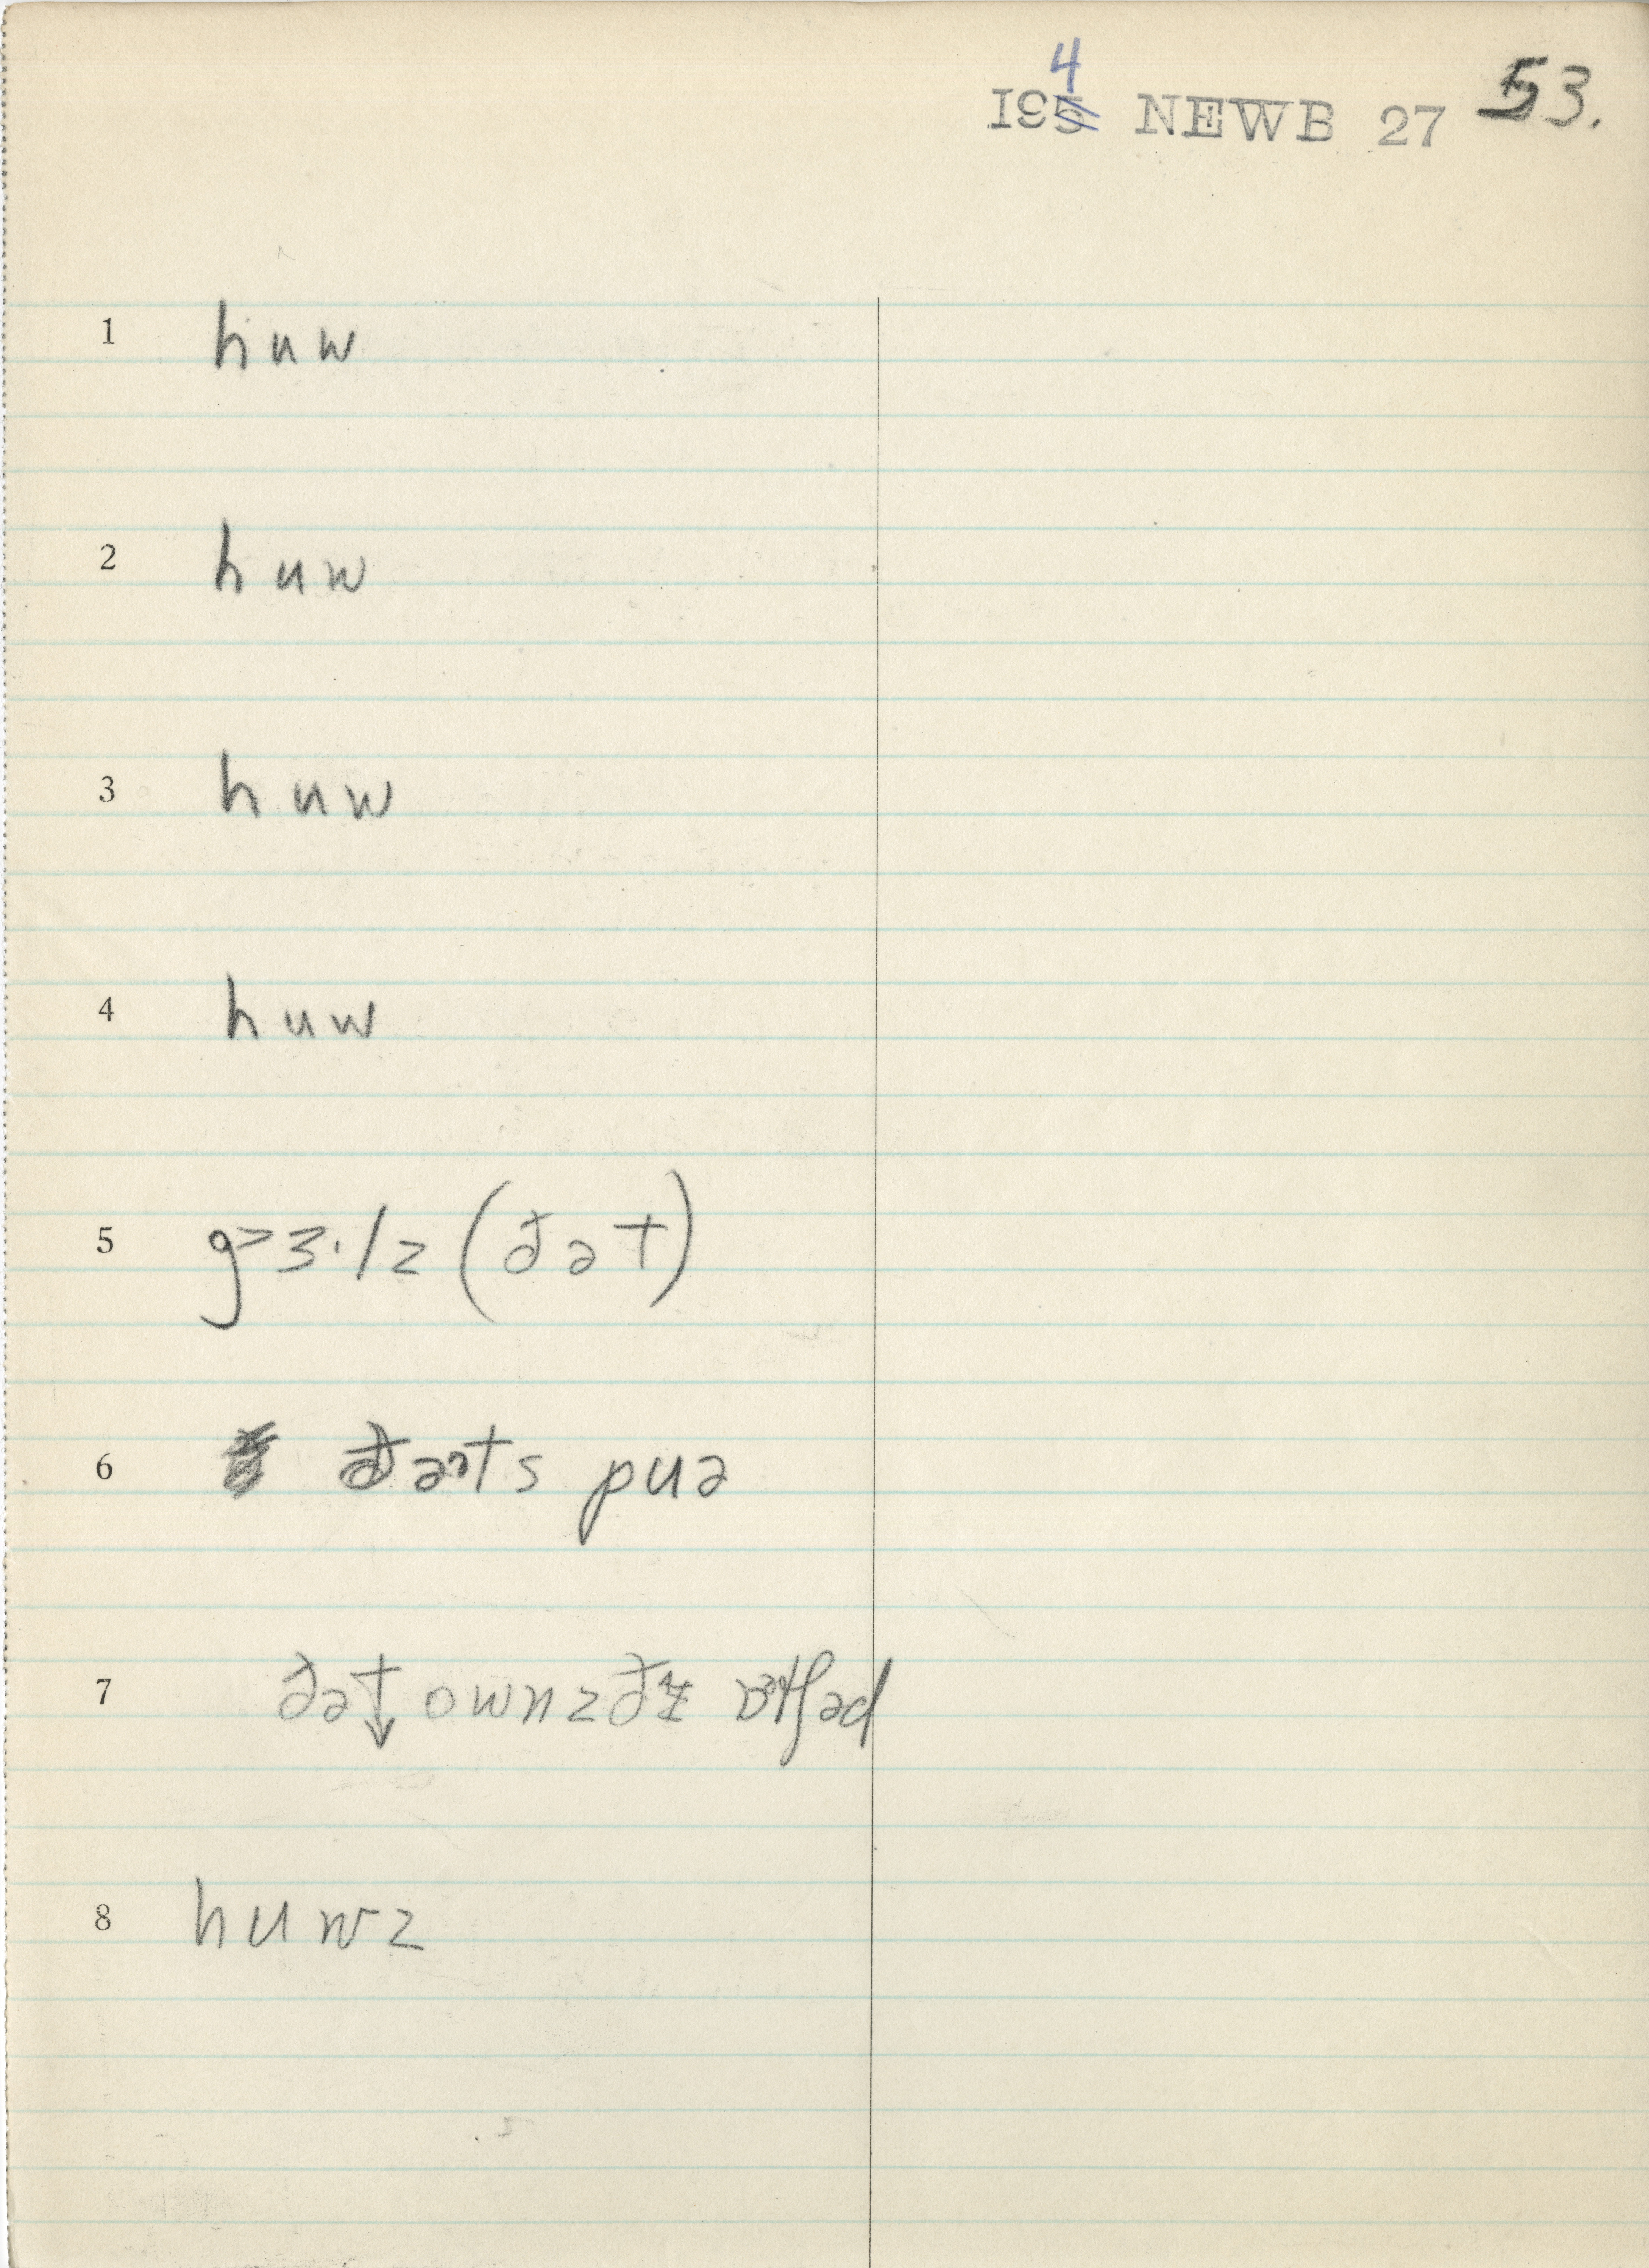 4
195 NEWB 27 53.
1 huw
2 huw
3 huw
4 huw
5 g>3·lz (ðət)
6 ðəts puə
7 ðət↓ ownzðɪ ətʃəd
8 huwz